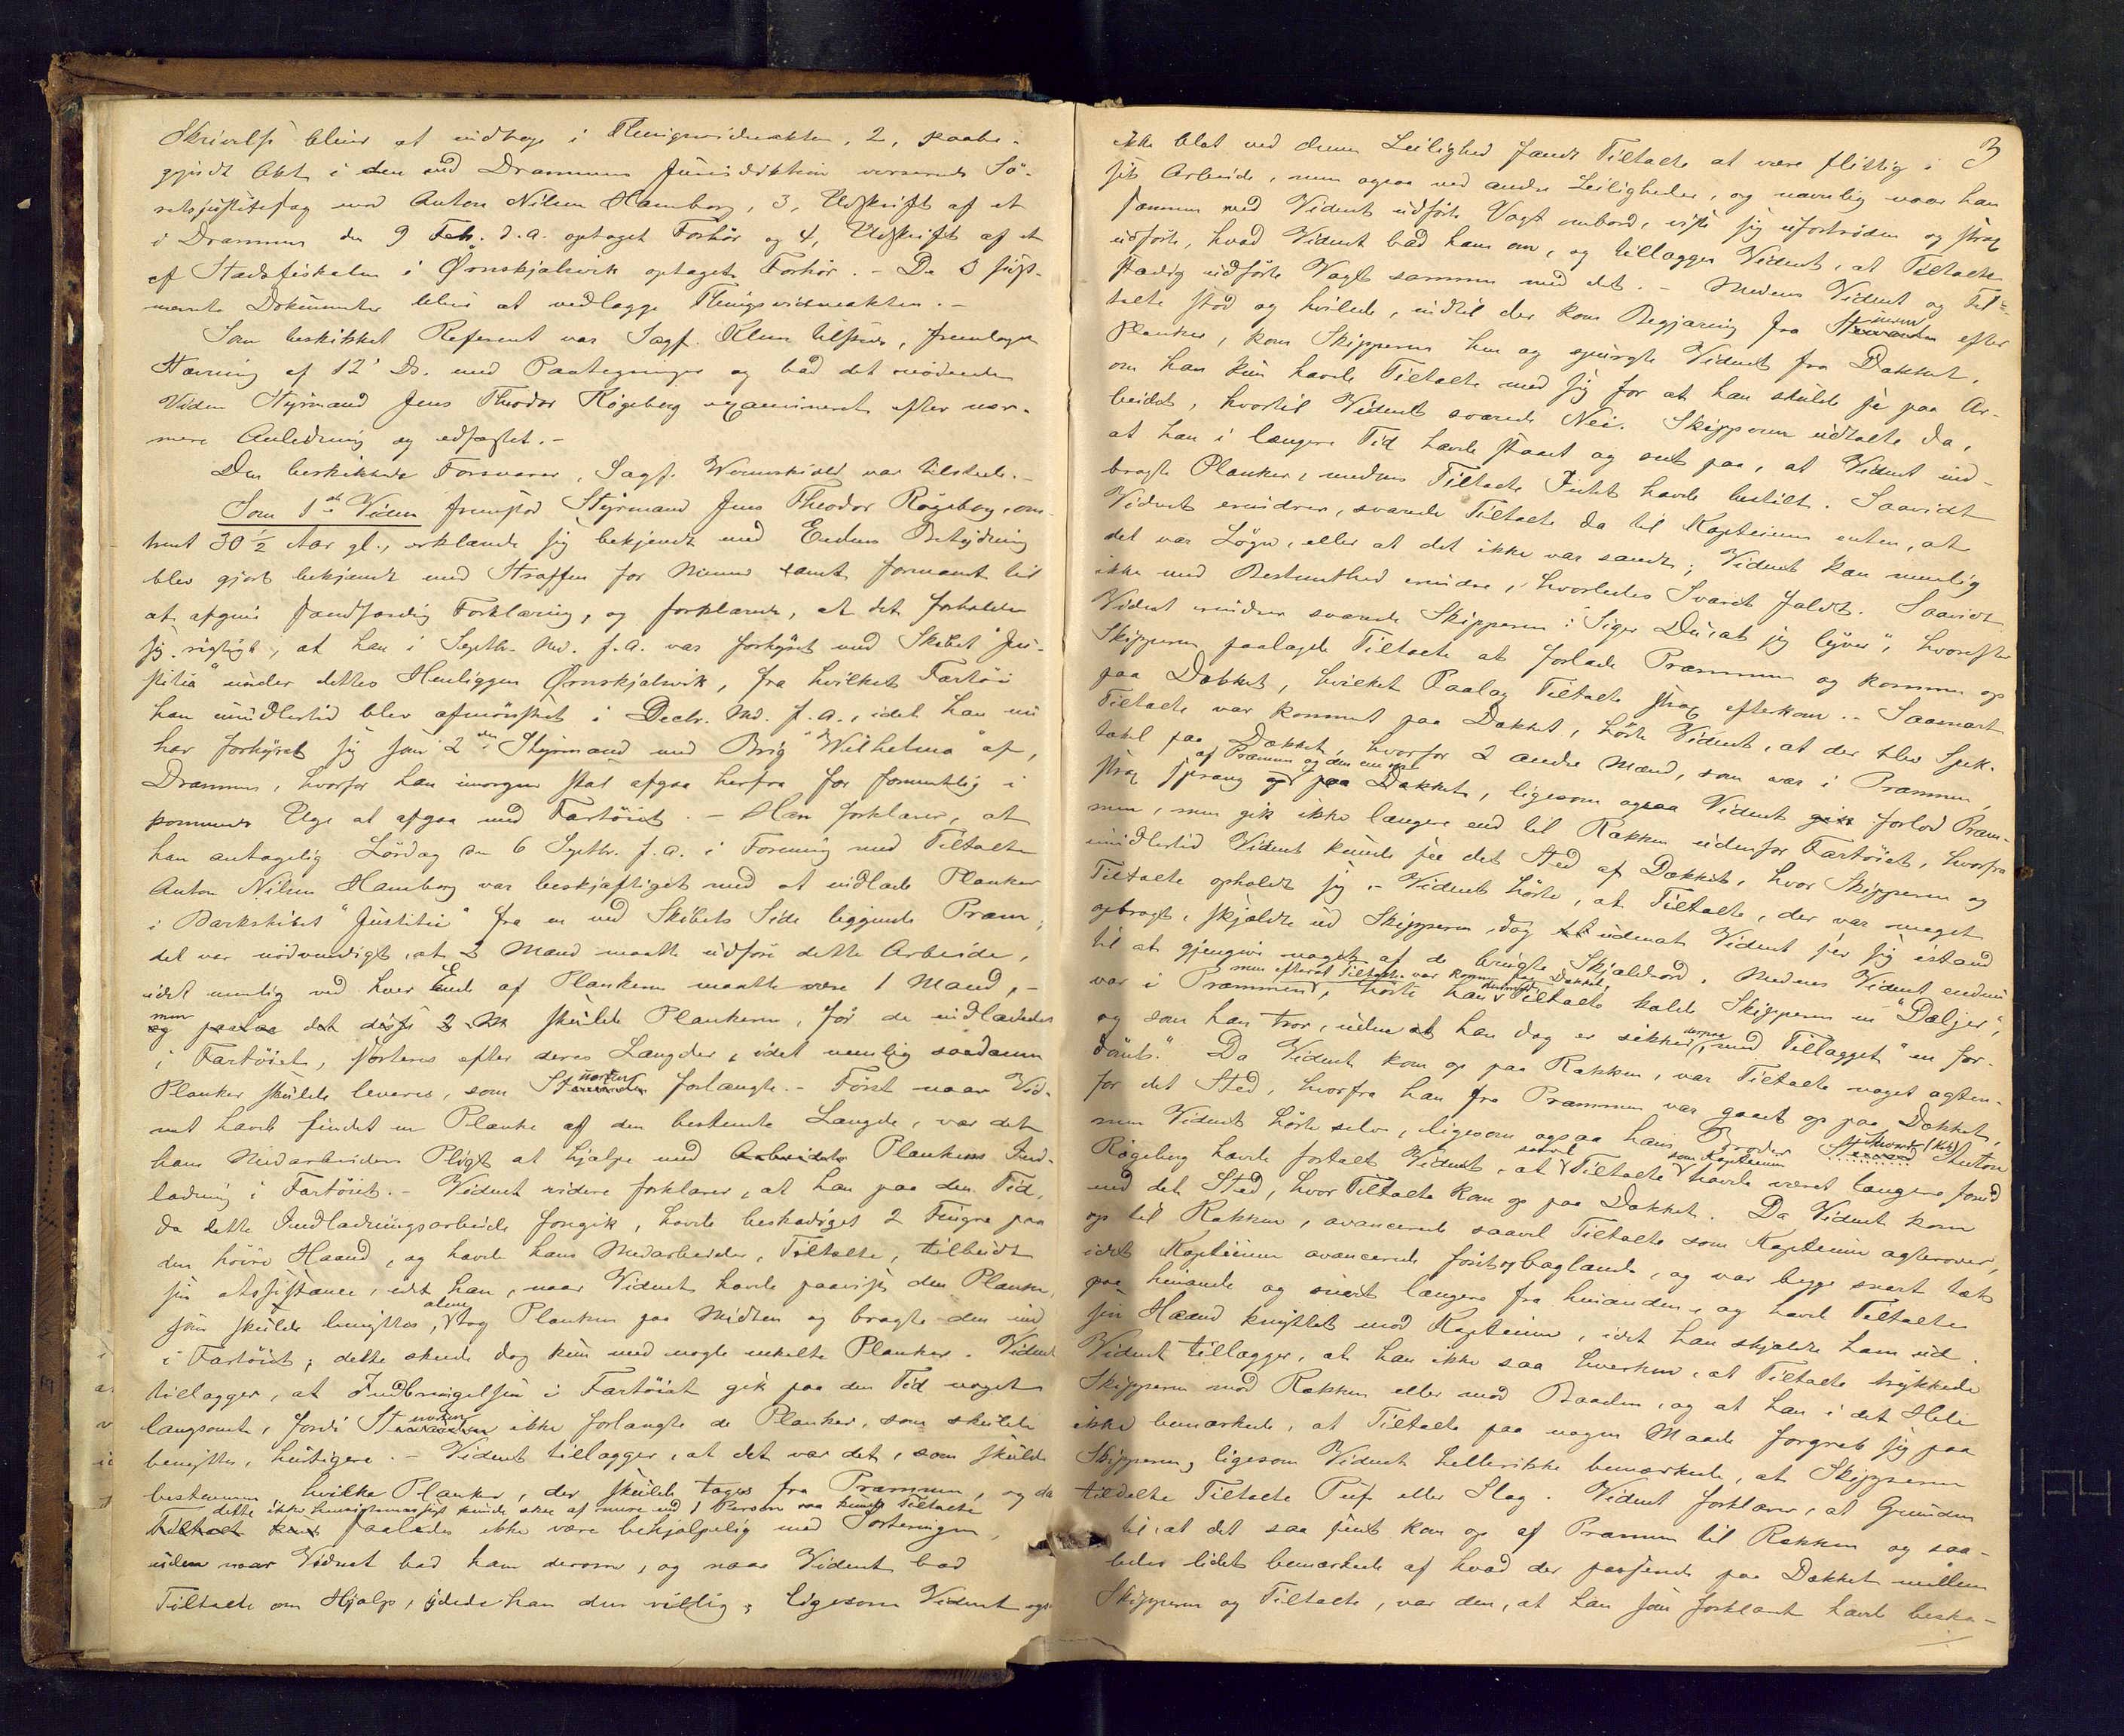 Skrivelse blive at indtage i Thingsvidneakten, 2, paabe-
gyndt Akt i den ved Drammens Jurisdiktion verserende Sö-
retsjustitssag mod Anton Nilsen Hamborg, 3, Udskrift af et
i Drammen den 9 Feb. d.A. optaget Forhör og 4, Udskrift af et
af Stadsfiskalen i Ørnskjoldsvik optaget Forhör. - De 3 sidst-
nævnte Dokumenter blive at vedlægge Thingsvidneakten. -
Som beskikket Referent var Sagf. Klem tilstede, fremlagde
Stævning af 12' Ds. med Paategninger og bad det mødende
Vidne Styrmand Jens Theodor Rögeberg examineret efter nær-
mere Anledning og edfæstet. -
Den beskikkede Forsvarer, Sagf. Wernerskiold var tilstede. -
Som 1ste Vidne fremstod Styrmand Jens Theodor Rögeberg, om-
trent 30 1/2 Aar gl., erklærede sig bekjendt med Edens Betydning
blev gjort bekjendt med Straffen for Meened samt formanet til
at afgive sandfærdig Forklaring, og forklarede, at det forholder
sig rigtigt, at han i Septbr. Md. f.A. var forhyret med Skibet "Ju-
stitia" under dettes Henliggen Ørnskjoldsvik, fra hvilket Fartöi
han imidlertid blev afmönstret i Decbr. Md. f.A., idet han nu
har forhyret sig som 2den Styrmand med Brig "Wilhelmina" af
Drammen, hvorfor han imorgen skal afgaa herfra for formentlig i
kommende Uge at afgaa med Fartöiet. - Han forklarer, at
han antagelig Lördag den 6 Septbr. f.A. i Forening med Tiltalte
Anton Nilsen Hamborg var beskjæftiget med at indlade Planker
i Barkskibet "Justitia" fra en ved Skibets Side liggende Pram;
det var nödvendigt, at 2 Mand maatte udföre dette Arbeide,
idet nemlig ved hver Ende af Plankerne maatte være 1 Mand, -
men og paasaa det disse 2 M skulde Plankerne, för de indlededes
i Fartöiet, sorteres efter deres Længder, idet nemlig saadanne
Planker skulde leveres, som Stuerten forlangte. - Först naar Vid-
net havde fundet en Planke af den bestemte Længde, var det
hans Medarbeiders Pligt at hjælpe med Arbeidets Plankens Ind-
ladning i Fartöiet. - Vidnet videre forklarer, at han paa den Tid,
da dette Indladningsarbeide foregik, havde beskadiget 2 Fingre paa
den höire Haand, og havde hans Medarbeider, Tiltalte, tilbudt
sin Assistance, idet han, naar Vidnet havde paavist den Planke,
som skulde benyttes, alene tog Planken paa Midten og bragte den ind
i Fartöiet; dette skede dog kun med nogle enkelte Planker. Vidnet
tillægger, at Indbringelsen i Fartöiet gik paa den Tid noget
langsomt, fordi Stuerten ikke forlangte de Planker, som skulde
benyttes, hurtigere. - Vidnet tillægger, at det var det, som skulde
bestemme hvilke Planker, der skulde tages fra Prammen, og da
dette ikke hensigtsmæssigt kunde skee af mere end 1 Person saa kunde Tiltalte
saaledes ikke være behjælpelig med Sorteringen,
uden naar Vidnet bad ham derom, og naar Vidnet bad
Tiltalte om Hjælp, ydede han den villig; ligesom Vidnet ogsaa
3
ikke blot ved denne Leilighed fandt Tiltalte at være flittig i
sit Arbeide, men ogsaa ved andre Leiligheder, og navnlig naar han
sammen med Vidnet udförte Vagt ombord, viste sig ufortröden og strax
udförte, hvad Vidnet bad ham om, og tillægger Vidnet, at Tiltalte
stadig udförte Vagt sammen med det. - Medens Vidnet og Til-
talte stod og hvilede, indtil der kom Begjæring fra Stuerten efter
Planker, kom Skipperen hen og spurgte Vidnet fra Dækket,
om han kun havde Tiltalte med sig for at han skulde se paa Ar-
beidet, hvortil Vidnet svarede Nei. Skipperen udtalte da,
at han i længere Tid havde staaet og seet paa, at Vidnet ind-
bragte Planker, medens Tiltalte Intet havde bestilt. Saavidt
Vidnet erindrer, svarede Tiltalte da til Kapteinen enten, at
det var Lögn, eller at det ikke var sandt; Vidnet kan nemlig
ikke med Bestemthed erindre, hvorledes Svaret faldt. Saavidt
Vidnet erindrer svarede Skipperen: "Siger Du, at jeg lyver", hvorefter
Skipperen paalagde Tiltalte at forlade Prammen og komme op
paa Dækket, hvilket Paalæg Tiltalte strax efterkom. - Saasnart
Tiltalte var kommet paa Dækket, hörte Vidnet, at der blev Spek-
takel paa Dækket, hvorfor 2 andre Mænd, som var i Prammen,
strax sprang af Prammen og den ene op paa Dækket, ligesom ogsaa Vidnet gik forlod Pram-
men, men gik ikke længere end til Rækken udenfor Fartöiet, hvorfra
imidlertid Vidnet kunde see det Sted af Dækket, hvor Skipperen og
Tiltalte opholdt sig. - Vidnet hörte, at Tiltalte, der var meget
opbragt, skjældte ud Skipperen, dog udenat Vidnet ser sig istand
til at gjengive noget af de brugte Skjældsord. Medens Vidnet endnu
var i Prammen, men efterat Tiltalte var kommen paa Dækket, hörte han Tiltalte kalde Skipperen en "Dæljer",
og som han tror, uden at han dog er sikker derpaa, med Tillægget "en for-
dömt." Da Vidnet kom op paa Rækken, var Tiltalte noget agten-
for det Sted, hvorfra han fra Prammen var gaaet op paa Dækket,
men Vidnet hörte selv, ligesom ogsaa hans Broder Anton
Rögeberg havde fortalt Vidnet, at saavel Tiltalte som Kapteinen havde været længere forud
end det Sted, hvor Tiltalte kom op paa Dækket. Da Vidnet kom
op til Rækken, avancerede saavel Tiltalte som Kapteinen agterover,
idet Kapteinen avancerede forti baglænds, og var begge snart tæt
paa hinanden og snart længere fra hinanden, og havde Tiltalte
sin Haand knyttet mod Kapteinen, idet han skjældte ham ud.
Vidnet tillægger, at han ikke saa hverken, at Tiltalte trykkede
Skipperen mod Rækken eller mod Baaden, og at han i det Hele
ikke bemærkede, at Tiltalte paa nogen Maade forgreb sig paa
Skipperen, ligesom Vidnet hellerikke bemærkede, at Skipperen
tildelte Tiltalte Puf eller Slag. Vidnet forklarer, at Grunden
til, at det saa sent kom op af Prammen til Rækken og saa-
ledes lidet bemærkede af hvad der passerede paa Dækket mellem
Skipperen og Tiltalte, var den, at han som forklaret havde beska-